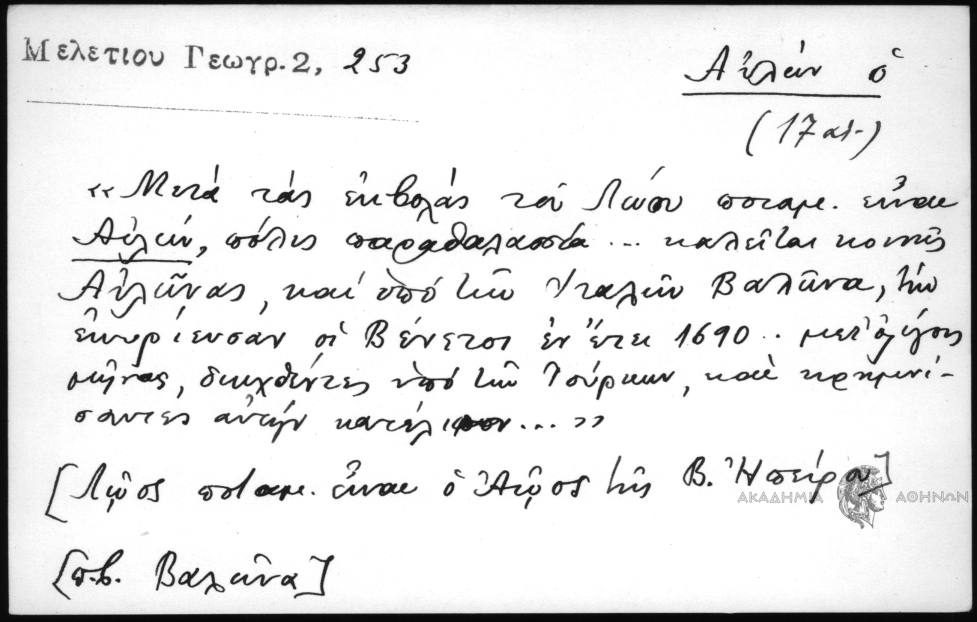 Μελετίου Γεωγρ. 2, 253
Αὐλών ὁ
(17 αἰ.)
«Μετά τάς ἐκβολάς τοῦ Λώου ποταμ. εἶναι
Αὐλών, πόλις παραθαλασσία ... καλεῖται κοινῶς
Αὐλῶνας, καί ὑπό τῶν Ἰταλῶν Βαλῶνα, τήν
ἐκυρίευσαν οἱ Βένετοι ἐν ἔτει 1690 .. μετ' ὀλίγους
μῆνας, διωχθέντες ὑπό τῶν Τούρκων, καί κρημνί-
σαντες αὐτήν κατέλιπον ... »
[Λῷος ποταμ. εἶναι ὁ Ἀῷος τῆς Β. Ἠπείρου]
[π.β. Βαλῶνα]
ΑΚΑΔΗΜΙΑ ΑΘΗΝΩΝ